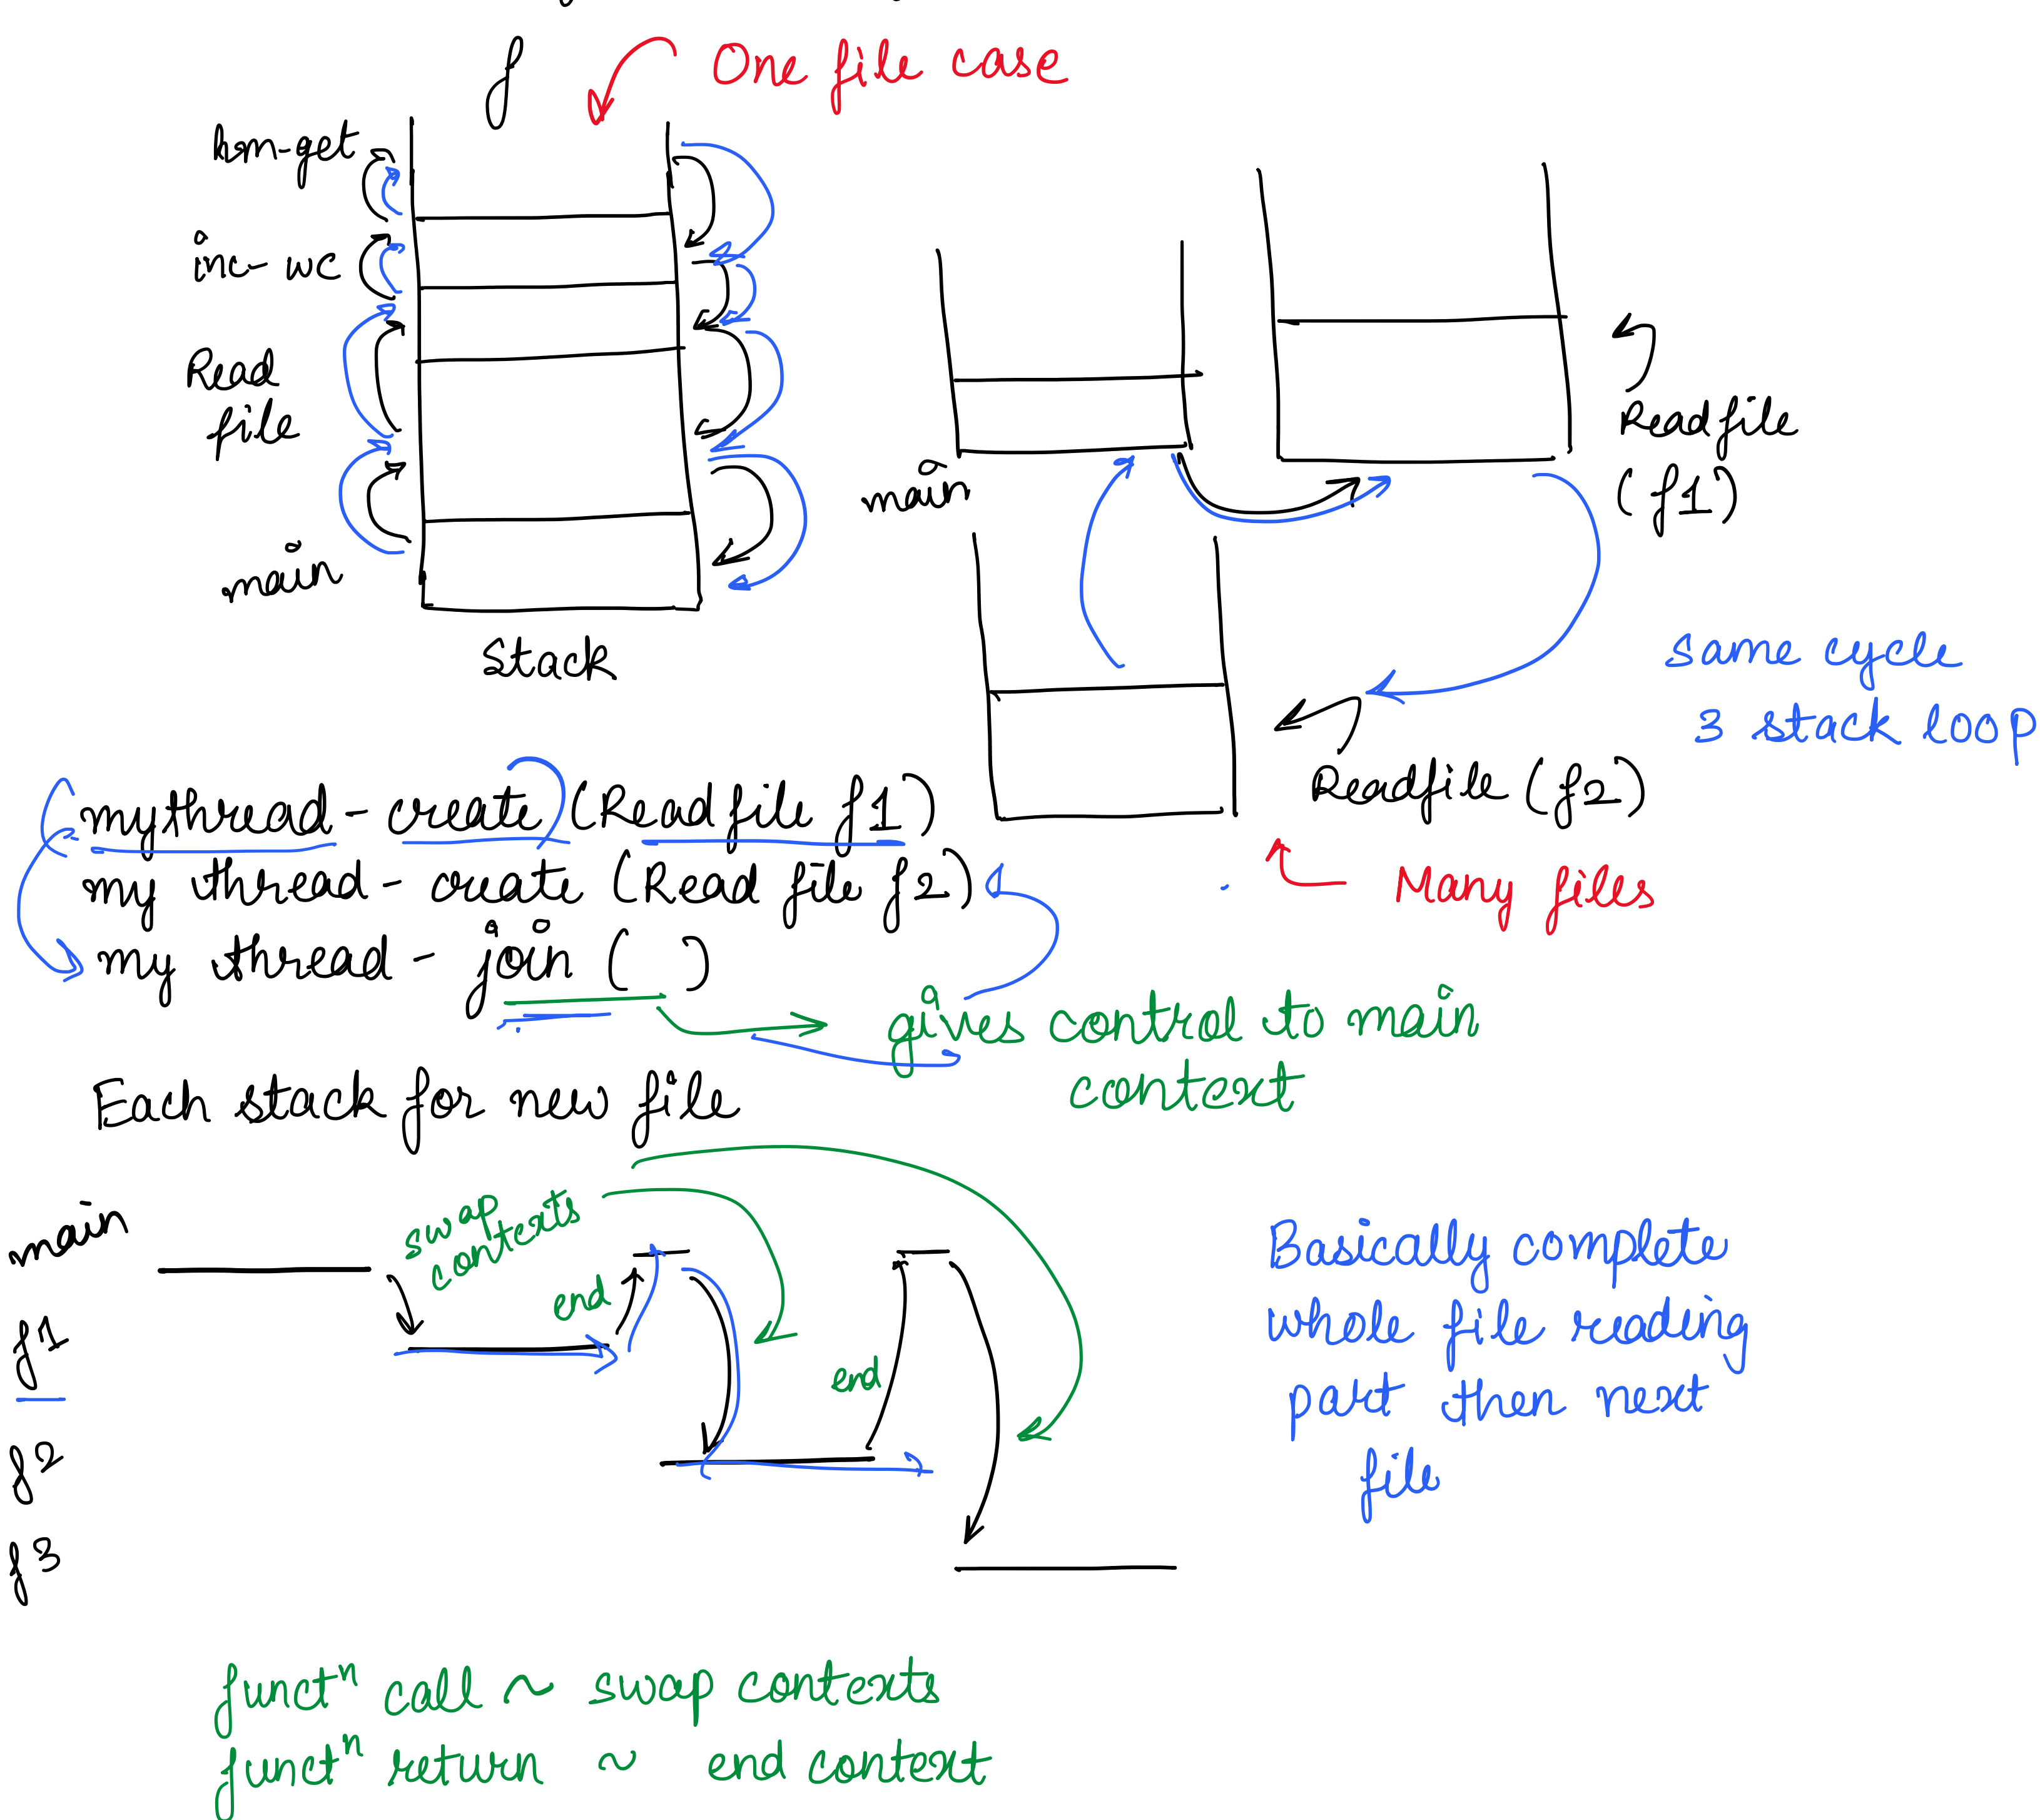 f
One file case
hsm-get
inc-wc
Read
file
main
Stack
main
Readfile
(f1)
same cycle
3 stack loop
Readfile (f2)
Many files
mythread-create (Readfile f1)
my thread-create (Read file f2)
my thread-join ( )
gives control to main
context
Each stack for new file
main
swap
contexts
end
f1
end
f2
f3
Basically complete
whole file reading
part then next
file
functⁿ call ~ swap contexts
functⁿ return ~ end context